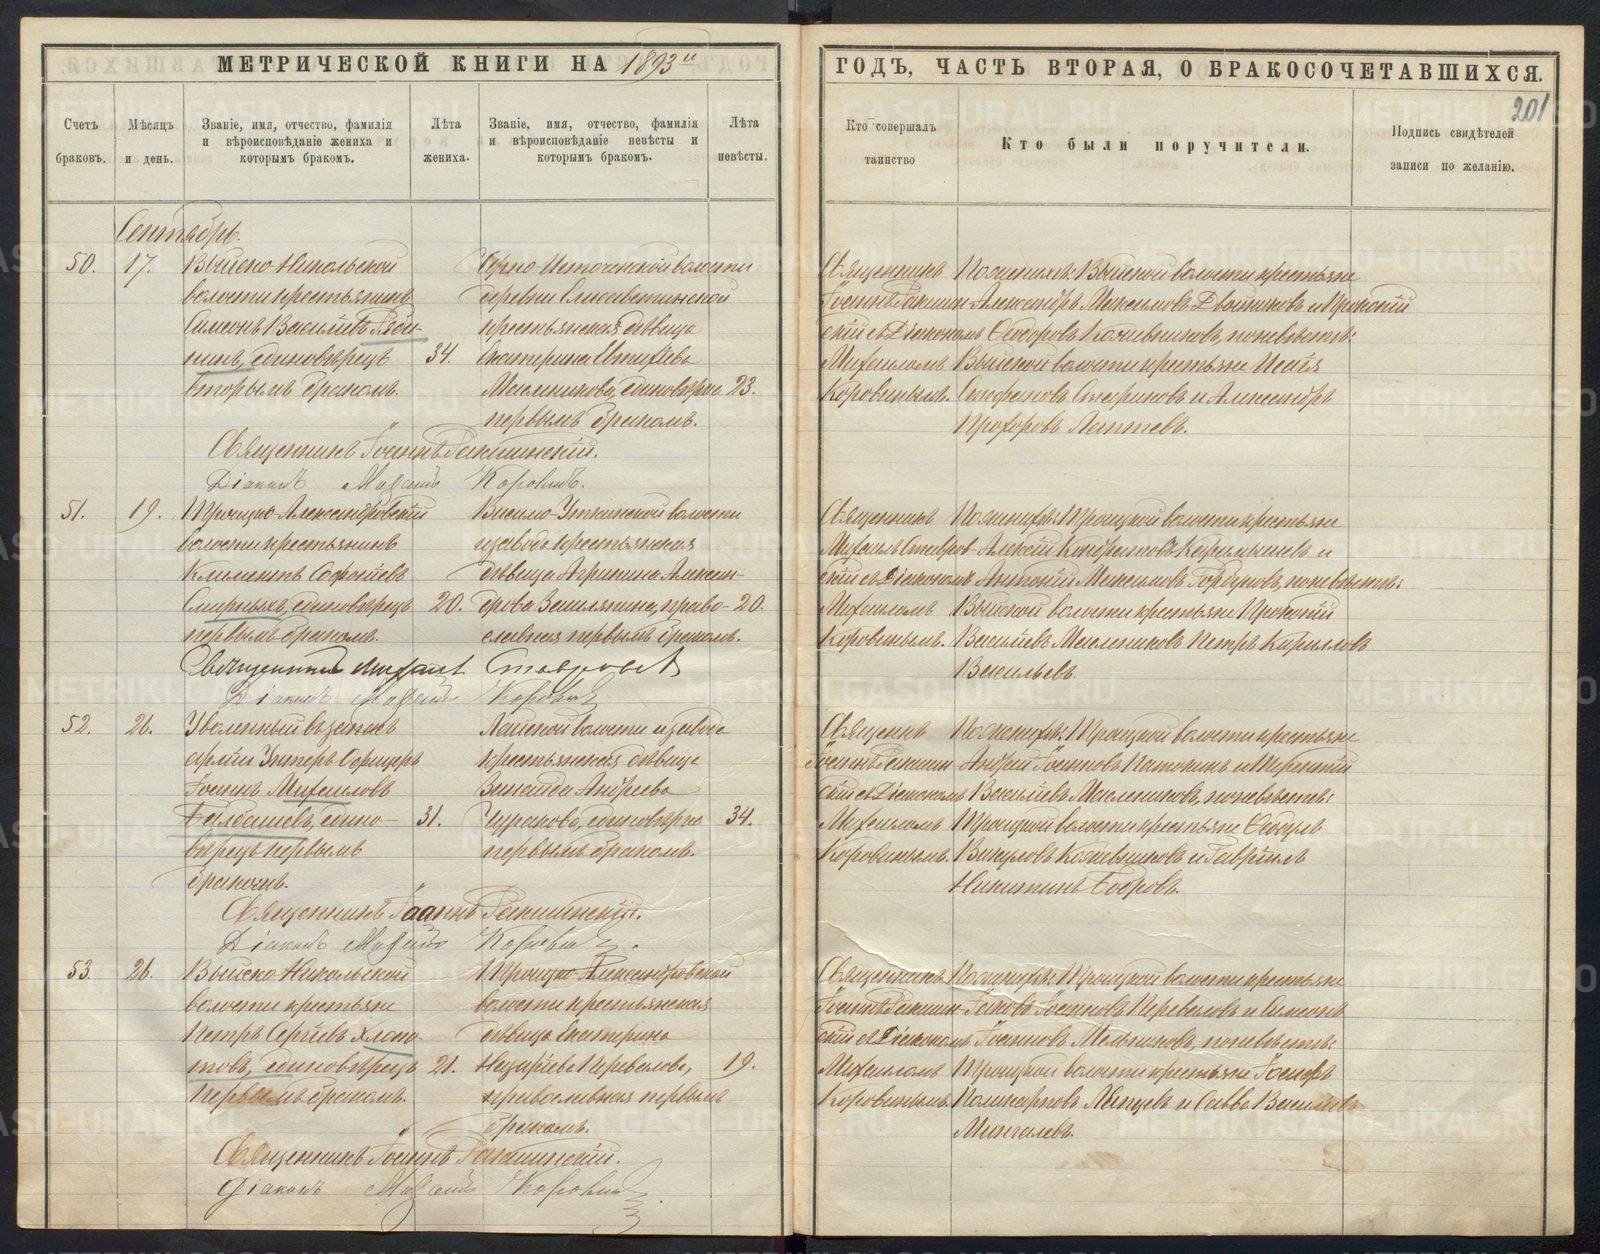 МЕТРИЧЕСКОЙ КНИГИ НА 1893 й
ГОДЪ, ЧАСТЬ ВТОРАЯ, О БРАКОСОЧЕТАВШИХСЯ.
201
Счетъ браковъ.
Мѣсяцъ и день.
Званіе, имя, отчество, фамилія
и вѣроисповѣданіе жениха и
которымъ бракомъ.
Лѣта жениха.
Званіе, имя, отчество, фамилія
и вѣроисповѣданіе невѣсты и
которымъ бракомъ.
Лѣта невѣсты.
Кто совершалъ таинство
Кто были поручители.
Подпись свидѣтелей
записи по желанію.
Сентябрь.
50.
17.
Выйско-Никольской
волости крестьянинъ
Симеонъ Васильевъ
единовѣрецъ
вторымъ бракомъ.
34.
Черно-Источенской волости
деревни Елисаветинской
крестьянская дѣвица
Екатерина
Масленикова, единовѣрка
первымъ бракомъ.
23.
Священникъ
Іоаннъ Ракшин-
скій съ Діакономъ
Михаиломъ
Коровинымъ.
По женихѣ: Выйской волости крестьяне
Александръ Максимовъ и Прокопій
Ѳедоровъ Кожевниковъ, по невѣстѣ:
Выйской волости крестьяне Исаія
Стефановъ Стариковъ и Александръ
Прохоровъ Лаптевъ.
Священникъ Іоаннъ Ракшинскій.
Діаконъ Михаилъ Коровинъ.
51.
19.
Троицко-Александровской
волости крестьянинъ
Климентъ
Смирныхъ, единовѣрецъ
первымъ бракомъ.
20.
Висимо-Уткинской волости
завода крестьянская
дѣвица Агрипина Алексан-
дрова, право-
славная первымъ бракомъ.
20.
Священникъ
Михаилъ Ставров-
скій съ Діакономъ
Михаиломъ
Коровинымъ.
По женихѣ: Троицкой волости крестьяне
Алексій Кондратовъ и
Антоній Максимовъ Горбуновъ, по невѣстѣ:
Выйской волости крестьяне Прокопій
Васильевъ Маслениковъ Петръ Кирилловъ
Васильевъ.
Священникъ Михаилъ Ставровскій
Діаконъ Михаилъ Коровинъ
52.
26.
Уволенный въ запасъ
арміи Унтеръ-Офицеръ
Іоаннъ Михаиловъ
едино-
вѣрецъ первымъ
бракомъ.
31.
Лайской волости и завода
крестьянская дѣвица
Зинаида Андреева
единовѣрка
первымъ бракомъ.
34.
Священникъ
Іоаннъ Ракшин-
скій съ Діакономъ
Михаиломъ
Коровинымъ.
По женихѣ: Троицкой волости крестьяне
Андрей Іоанновъ и Терентій
Васильевъ Маслениковъ, по невѣстѣ:
Троицкой волости крестьяне Ѳеодоръ
Викуловъ Кожевниковъ и Гавріилъ
Никитинъ Бобровъ.
Священникъ Іоаннъ Ракшинскій.
Діаконъ Михаилъ Коровинъ.
53.
26.
Выйско-Никольской
волости крестьян
Петръ Сергіевъ Хлопо-
товъ, единовѣрецъ
первымъ бракомъ.
21.
Троицко-Александровской
волости крестьянская
дѣвица Екатерина
Назарьева Перевалова,
православная первымъ
бракомъ.
19.
Священникъ
Іоаннъ Ракшин-
скій съ Діакономъ
Михаиломъ
Коровинымъ.
По женихѣ: Троицкой волости крестьяне
Іаковъ Іоанновъ Переваловъ и Симеонъ
Іоанновъ Мельниковъ, по невѣстѣ:
Троицкой волости крестьяне Іосифъ
Поликарповъ и Савва Васильевъ
Мингалевъ.
Священникъ Іоаннъ Ракшинскій.
Діаконъ Михаилъ Коровинъ.
METRIKI.GASO-URAL.RU